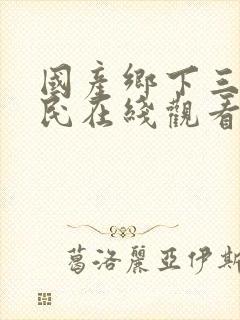 國產鄉下三
民在綫觀看
葛洛麗亞伊斯